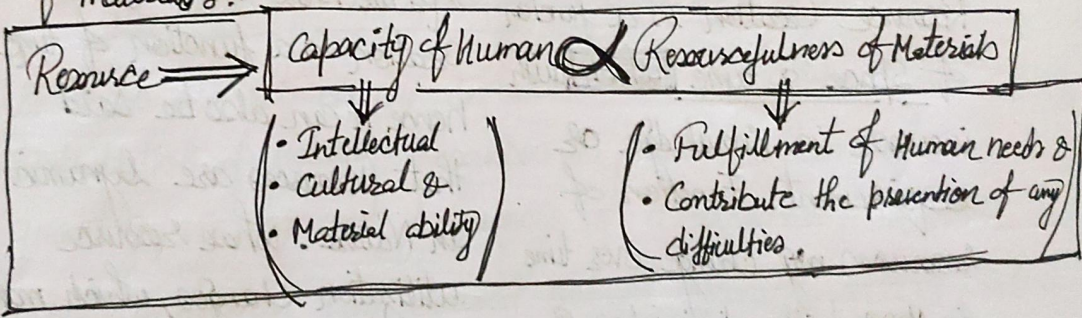 Materials.
Resource ⇒ Capacity of Human ∝ Resourcefulness of Materials
• Intellectual
• Cultural &
• Material ability
• Fulfillment of Human needs &
• Contribute the prevention of any
difficulties.